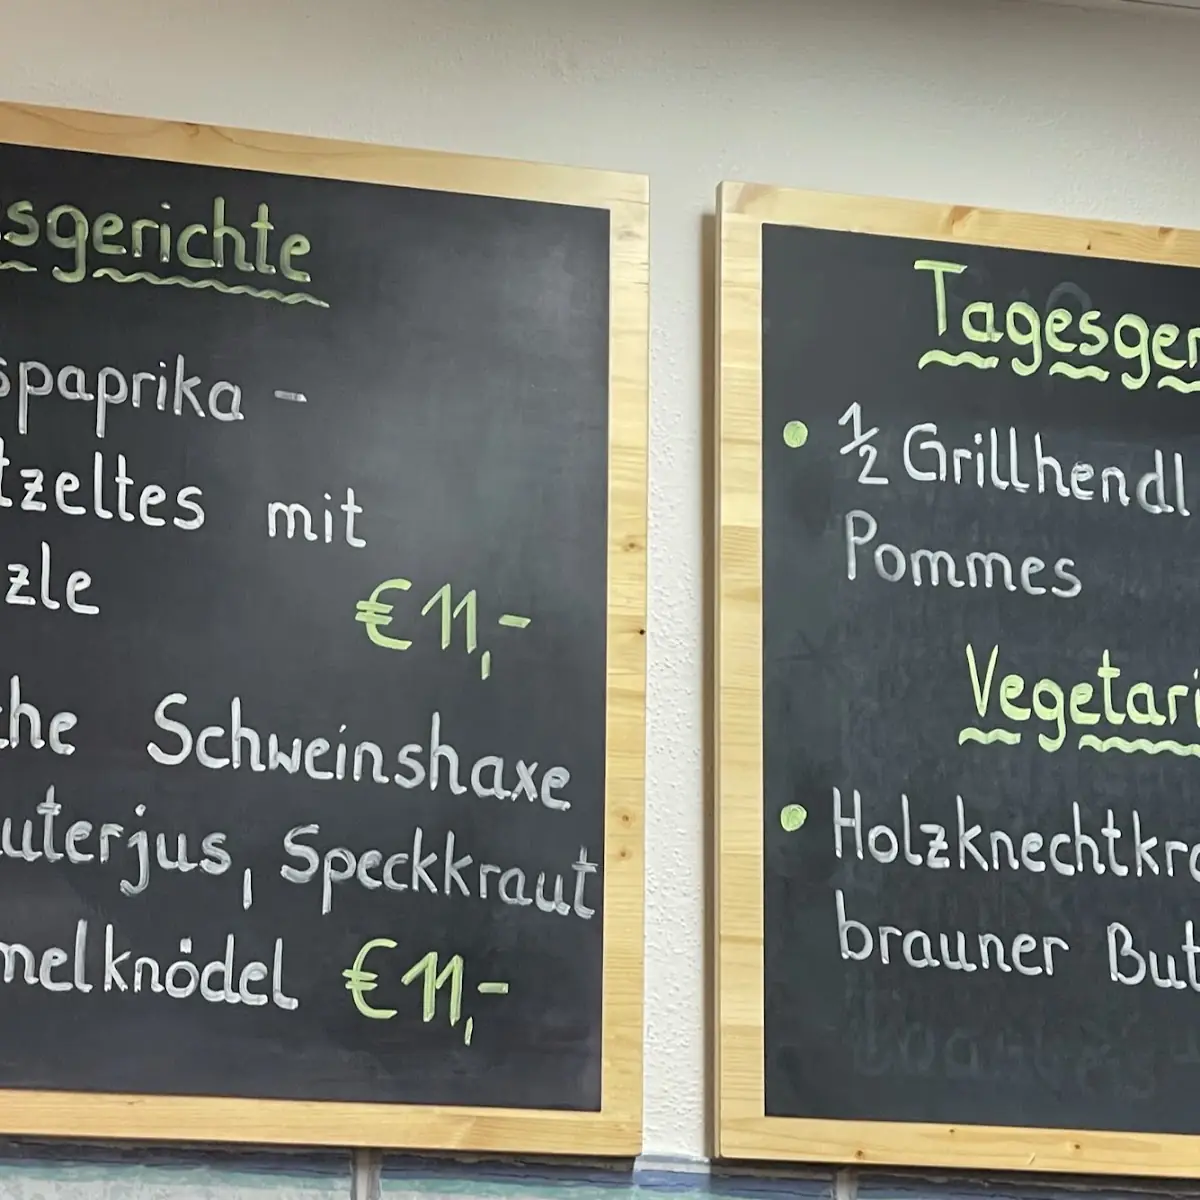 sgerichte
spaprika -
tzeltes mit
zle
€ 11,-
che Schweinshaxe
uterjus, Speckkraut
melknödel € 11,-
Tagesger
• 1/2 Grillhendl
Pommes
Vegetari
• Holzknechtkra
brauner But